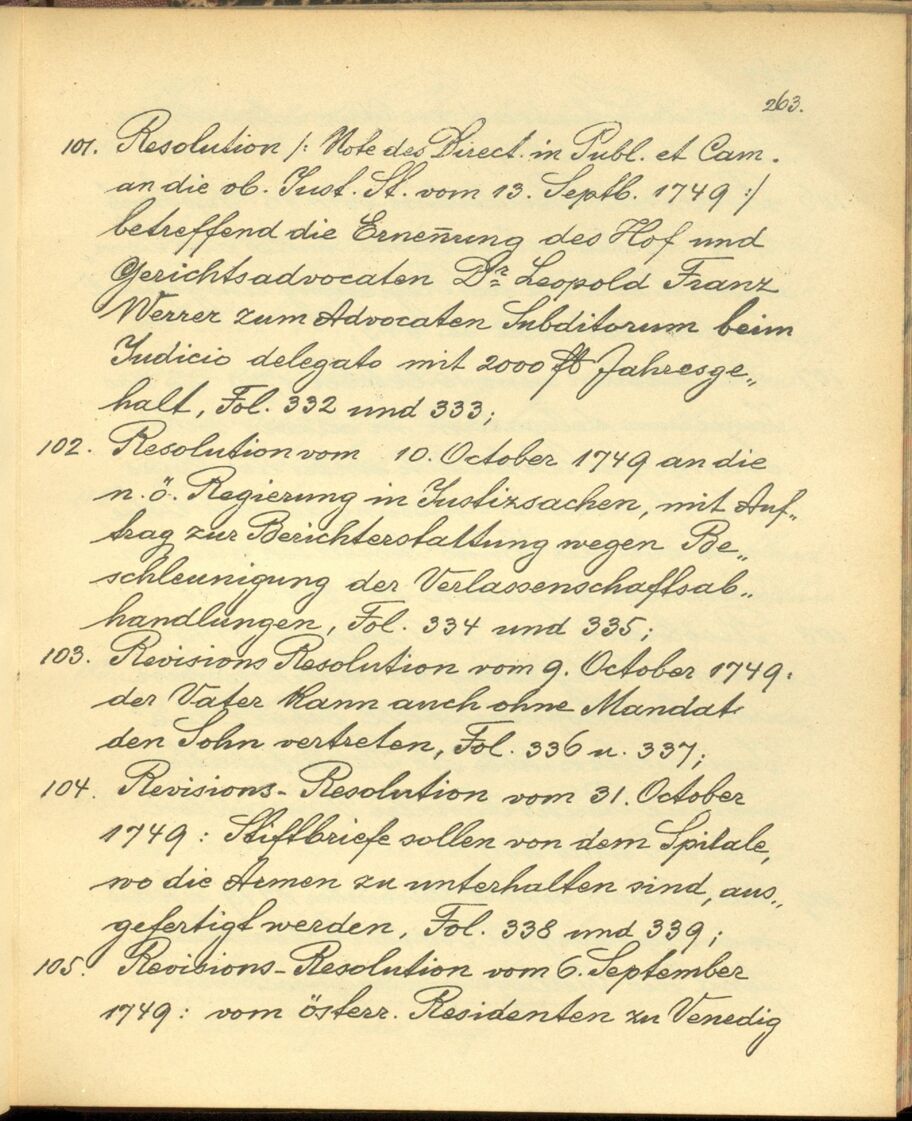 263.
101. Resolution /: Note des Direct. in Publ. et Cam.
an die ob. Just. St. vom 13. Septb. 1749 :/
betreffend die Erneñung des Hof und
Gerichtsadvocaten Dr. Leopold Franz
Werrer zum Advocaten Subditorum beim
Judicio delegato mit 2000 fl Jahresge„
halt, Fol. 332 und 333;
102. Resolution vom 10. October 1749 an die
n. ö. Regierung in Justizsachen, mit Auf„
trag zur Berichterstattung wegen Be„
schleunigung der Verlassenschaftsab„
handlungen, Fol. 334 und 335;
103. Revisions Resolution vom 9. October 1749:
der Vater kann auch ohne Mandat
den Sohn vertreten, Fol. 336 u. 337;
104. Revisions-Resolution vom 31. October
1749: Stiftbriefe sollen von dem Spitale,
wo die Armen zu unterhalten sind, aus„
gefertigt werden, Fol. 338 und 339;
105. Revisions-Resolution vom 6. September
1749: vom österr. Residenten zu Venedig